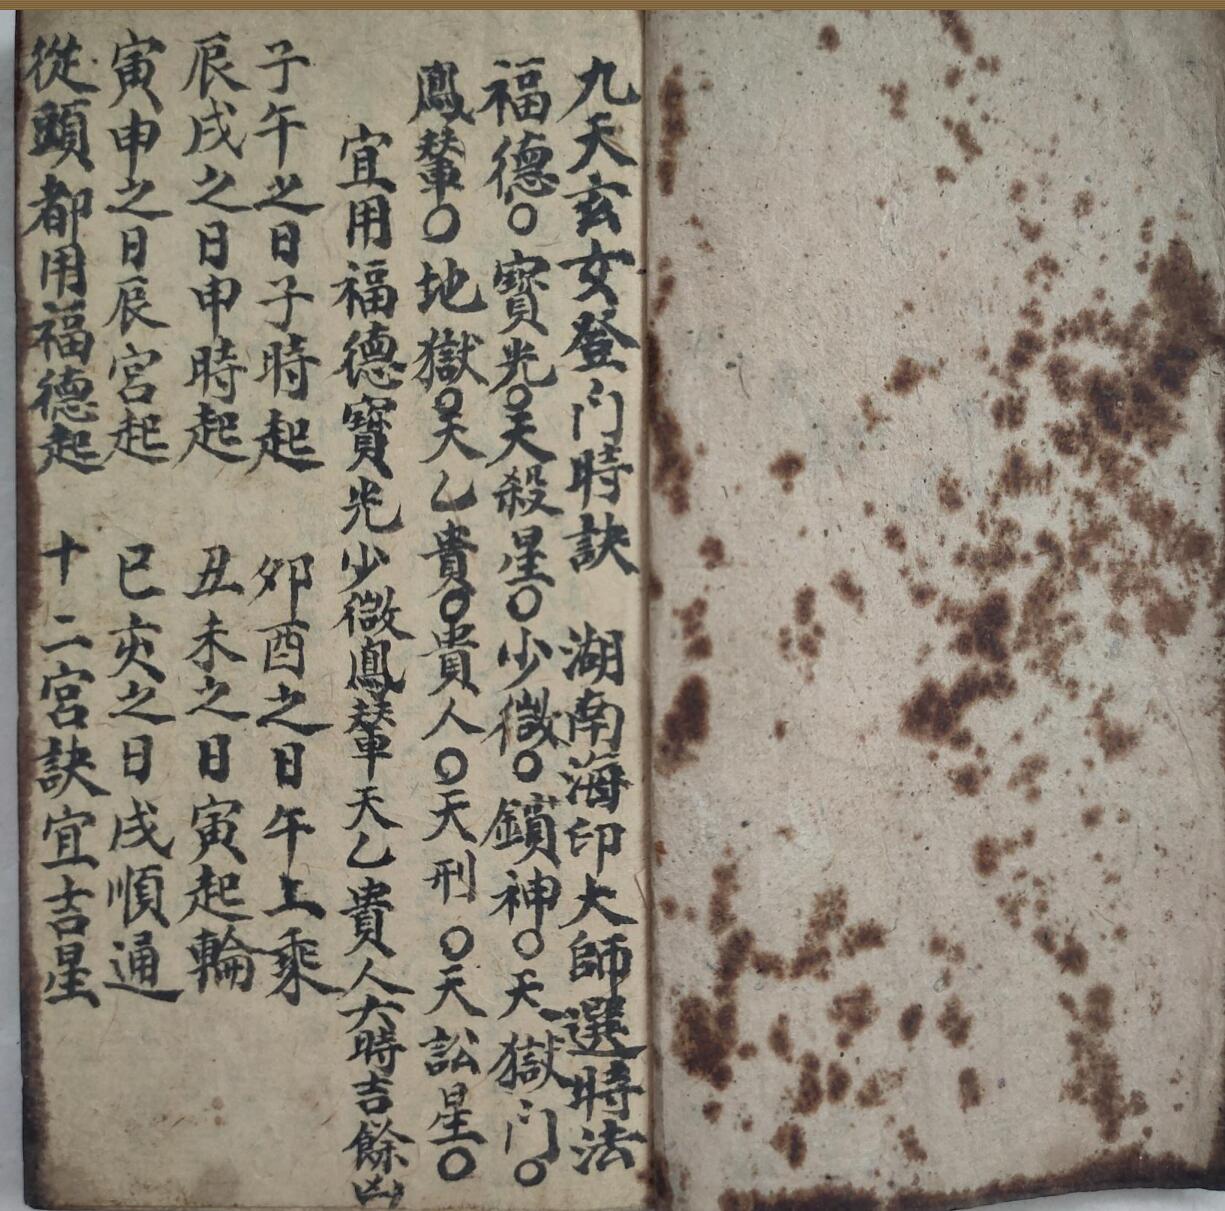 九天玄女登门時訣　湖南海印大師選時法
福德○寶光○天殺星○少微○鎖神○天獄门○
鳳輦○地獄○天乙貴○貴人○天刑○天訟星○
宜用福德寶光少微鳳輦天乙貴人六時吉餘凶
子午之日子時起　卯酉之日午上乘
辰戌之日申時起　丑未之日寅起輪
寅申之日辰宮起　巳亥之日戌順通
從頭都用福德起　十二宮訣宜吉星